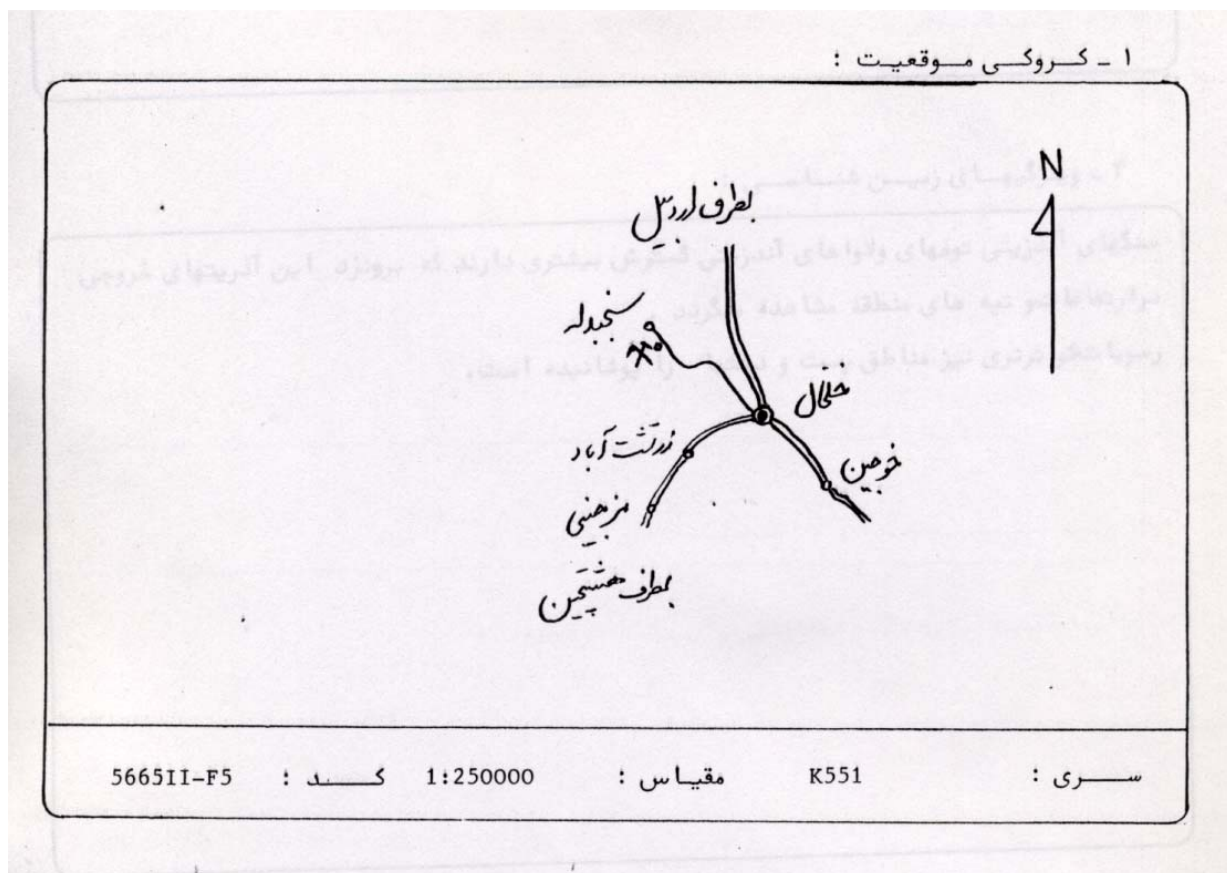 ۱ - کروکی موقعیت :
N
بطرف اردبیل
سنجبدله
خلخال
زرتشت آباد
خوجین
بطرف هشتجین
سری : K551 مقیاس : 1:250000 کد : 5665II-F5